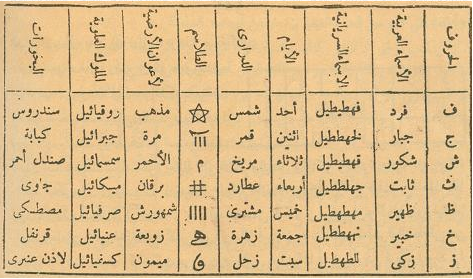 الحروف الأسماء العربية الأسماء السريانية الأيام الدرارى الطلاسم لأعوان الأرضية الملوك العلوية البخورات
ف فرد فهطيطيل أحد شمس مذهب روقيائيل سندروس
ج جبار اثنين قمر مرة جبرائيل كبابة
ش شكور قهيطيطيل ثلاثاء مريخ م الأحمر سمسمائيل صندل أحمر
ث ثابت جهلططيل أربعاء عطارد # برقان ميكائيل جاوى
ظ ظهير مهطهطيل خميس مشترى شمهورش صرفيائيل مصطكى
خ خبير جمعة زهرة زوبعة عنيائيل قرنفل
ز زكى للطهطيل سبت زحل ميمون كسفيائيل لاذن عنبرى